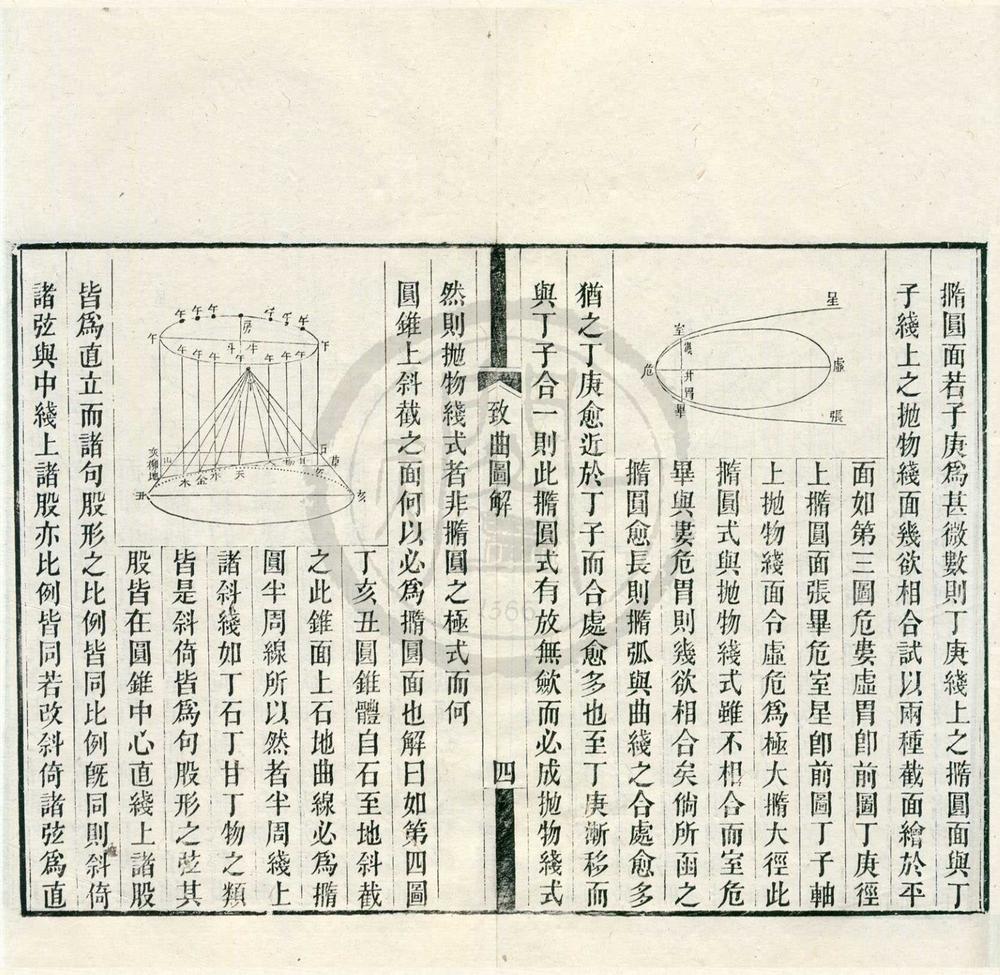 撱圓面若子庚爲甚微數則丁庚綫上之撱圓面與丁
子綫上之拋物綫面幾欲相合試以兩種截面繪於平
面如第三圖危婁虛胃卽前圖丁庚徑
上撱圓面張畢危室星卽前圖丁子軸
上拋物綫面令虛危爲極大撱大徑此
撱圓式與拋物綫式雖不相合而室危
畢與婁危胃則幾欲相合矣倘所函之
撱圓愈長則撱弧與曲綫之合處愈多
星
室
婁
危
井
虛
胃
畢
張
猶之丁庚愈近於丁子而合處愈多也至丁庚漸移而
與丁子合一則此撱圓式有放無歛而必成拋物綫式
致曲圖解
四
然則拋物綫式者非撱圓之極式而何
圓錐上斜截之面何以必爲撱圓面也解曰如第四圖
丁亥丑圓錐體自石至地斜截
之此錐面上石地曲線必爲撱
圓半周線所以然者半周綫上
諸斜綫如丁石丁甘丁物之類
皆是斜倚皆爲句股形之弦其
股皆在圓錐中心直綫上諸股
午 午 午 午 午 午 午 午
房
斗 牛
午 午 午 午 午 午 午
石
亥
柳
地
木 金 水 天
丑
亥
皆爲直立而諸句股形之比例皆同比例旣同則斜倚
諸弦與中綫上諸股亦比例皆同若改斜倚諸弦爲直
1566